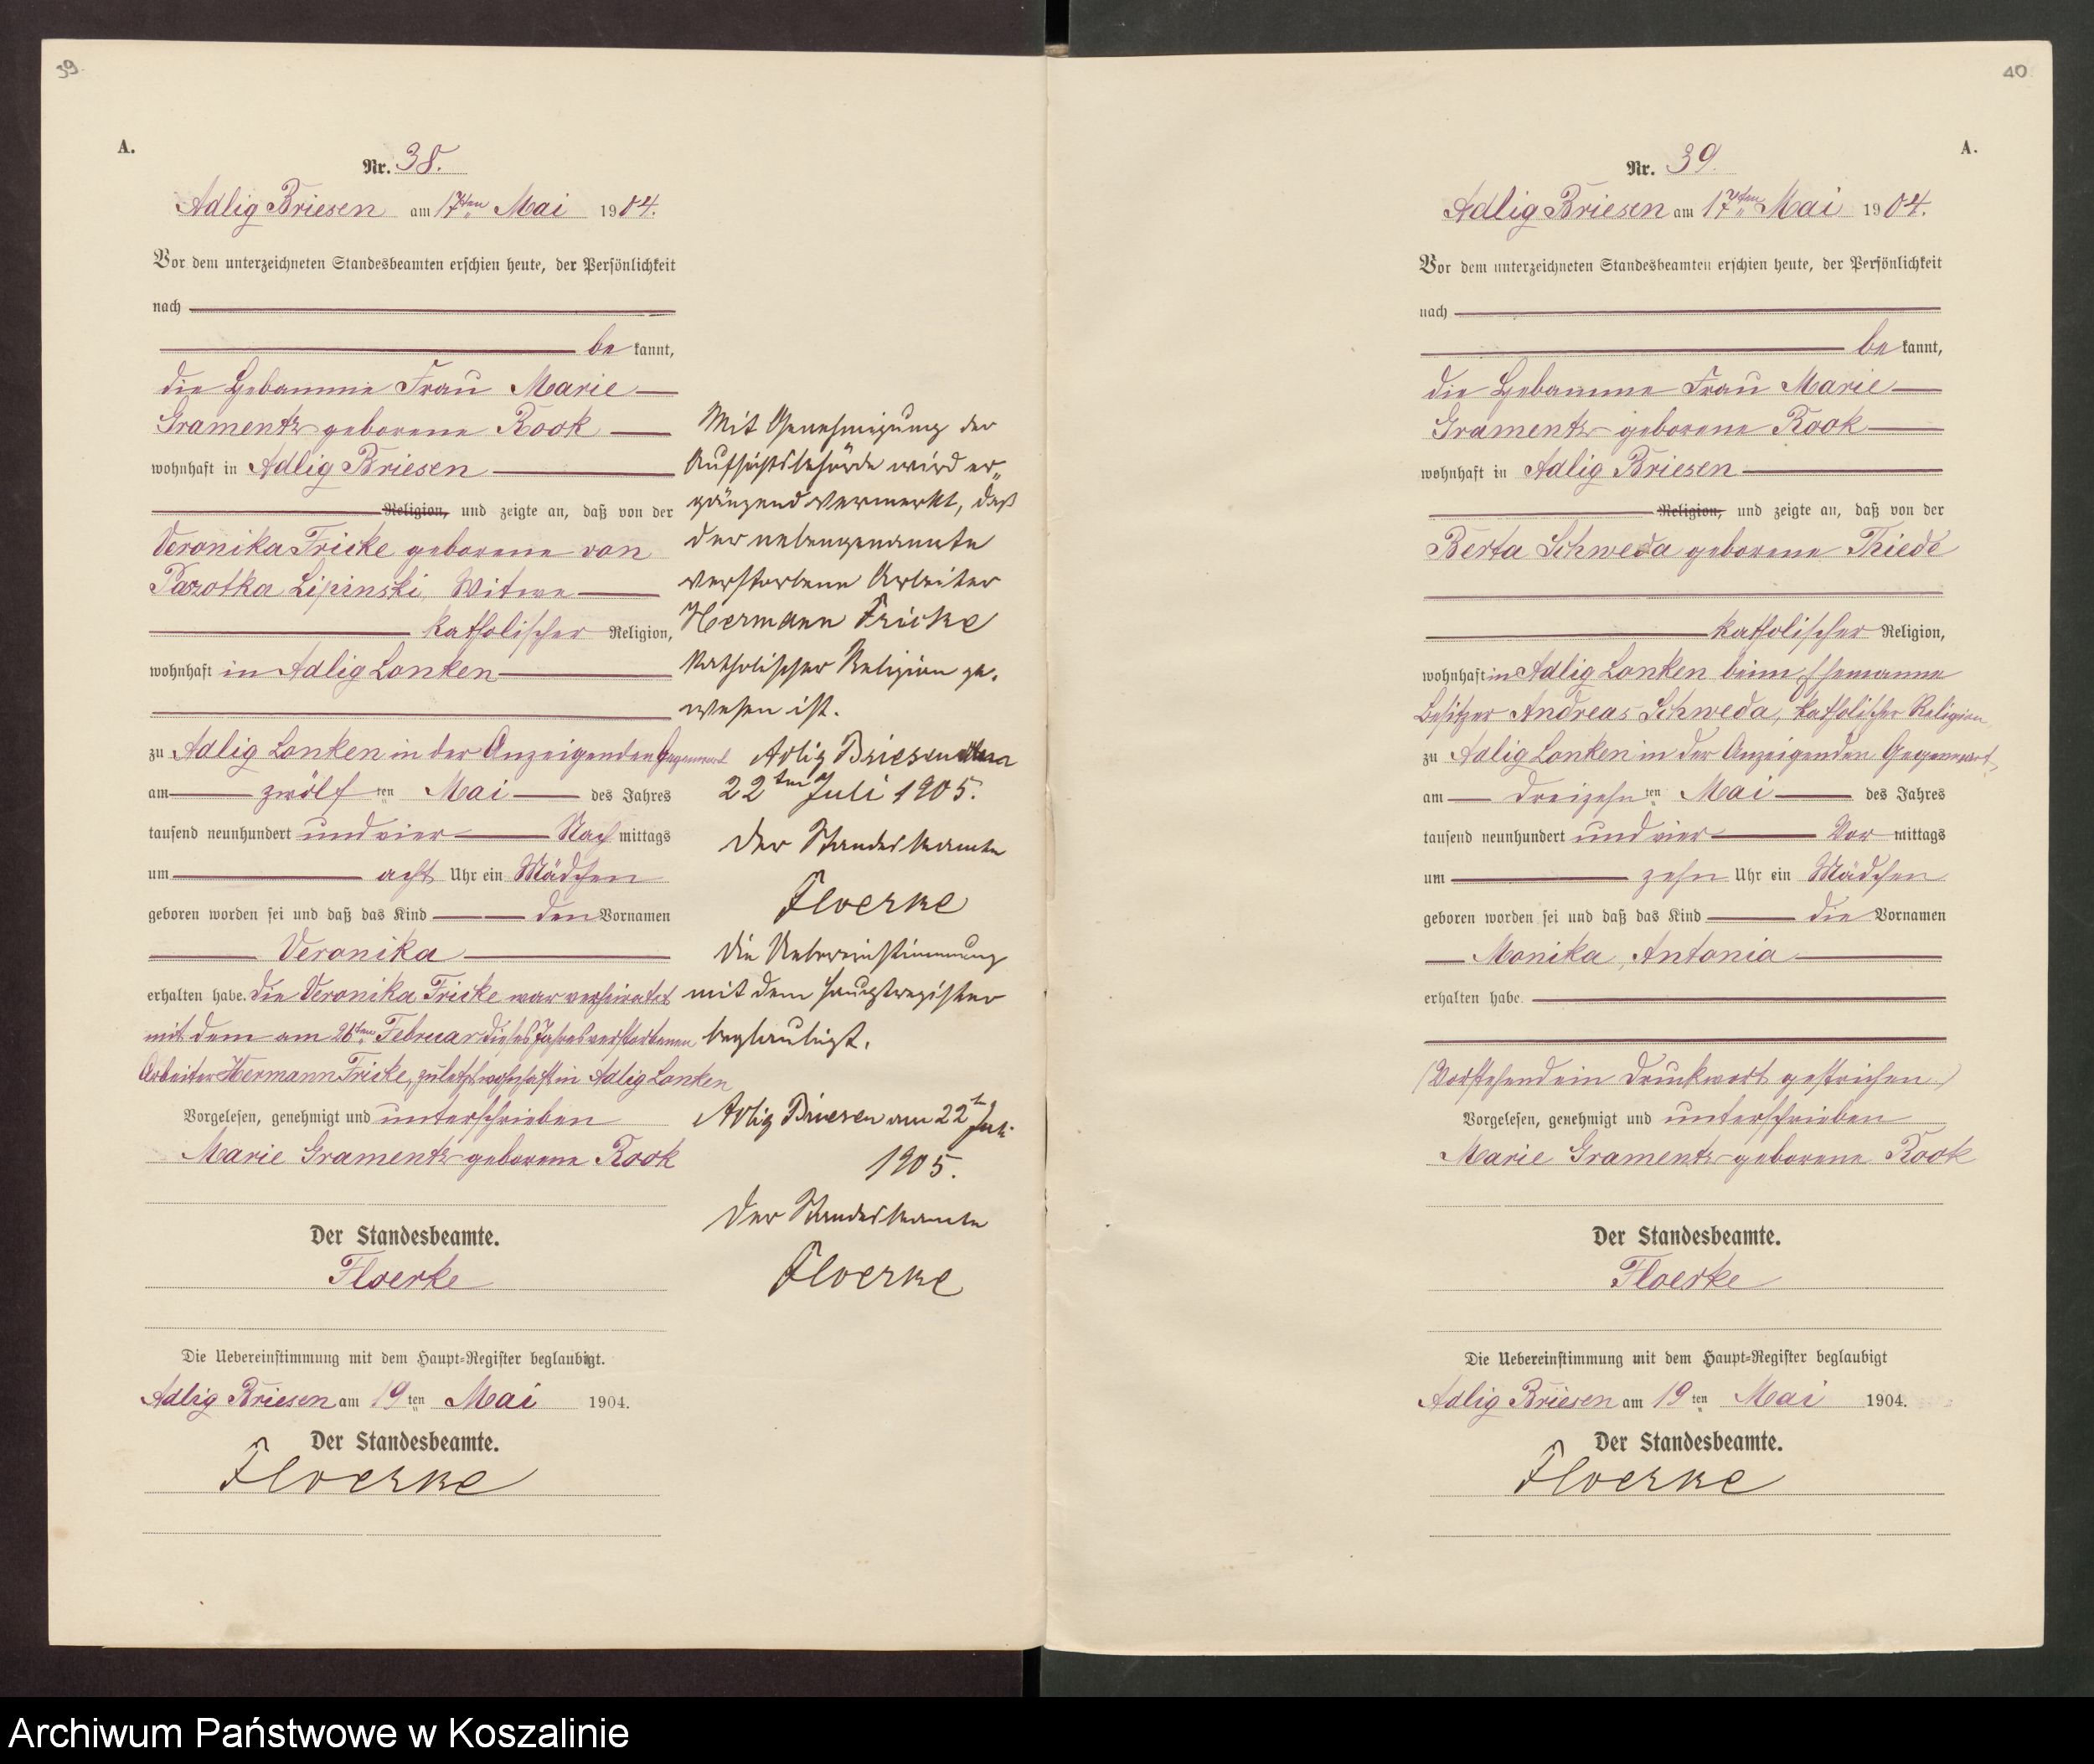 39
A.
Nr. 38.
Adlig Briesen am 17ten Mai 1904.
Vor dem unterzeichneten Standesbeamten erschien heute, der Persönlichkeit
nach
be kannt,
die Hebamme Frau Marie
Gramentz geborene Rook
wohnhaft in Adlig Briesen
Religion, und zeigte an, daß von der
Veronika Fricke geborene von
Pazotka Lipinski, Witwe
katholischer Religion,
wohnhaft in Adlig Lonken
zu Adlig Lonken in der Anzeigenden Gegenwart
am zwölf ten Mai des Jahres
tausend neunhundert und vier Nach mittags
um acht Uhr ein Mädchen
geboren worden sei und daß das Kind den Vornamen
Veronika
erhalten habe. Die Veronika Fricke war verheiratet
mit dem am 26ten Februar dieses Jahres verstorbenen
Arbeiter Hermann Fricke, zuletzt wohnhaft in Adlig Lonken
Vorgelesen, genehmigt und unterschrieben
Marie Gramentz geborene Rook
Der Standesbeamte.
Floerke
Die Uebereinstimmung mit dem Haupt-Register beglaubigt.
Adlig Briesen am 19 ten Mai 1904.
Der Standesbeamte.
Floerke
Mit Genehmigung der
Aufsichtsbehörde wird er„
gänzend vermerkt, daß
der nebengenannte
verstorbene Arbeiter
Hermann Fricke
katholischer Religion ge„
wesen ist.
Adlig Briesen den
22ten Juli 1905.
Der Standesbeamte
Floerke
Die Uebereinstimmung
mit dem Hauptregister
beglaubigt.
Adlig Briesen am 22t Juli
1905.
Der Standesbeamte
Floerke
40
A.
Nr. 39.
Adlig Briesen am 17ten Mai 1904.
Vor dem unterzeichneten Standesbeamten erschien heute, der Persönlichkeit
nach
be kannt,
die Hebamme Frau Marie
Gramentz geborene Rook
wohnhaft in Adlig Briesen
Religion, und zeigte an, daß von der
Berta Schweda geborene Thiede
katholischer Religion,
wohnhaft in Adlig Lonken beim Ehemanne
Besitzer Andreas Schweda, katholischer Religion
zu Adlig Lonken in der Anzeigenden Gegenwart,
am dreizehn ten Mai des Jahres
tausend neunhundert und vier Vor mittags
um zehn Uhr ein Mädchen
geboren worden sei und daß das Kind die Vornamen
Monika, Antonia
erhalten habe.
(Vorstehend ein Druckwort gestrichen)
Vorgelesen, genehmigt und unterschrieben
Marie Gramentz geborene Rook
Der Standesbeamte.
Floerke
Die Uebereinstimmung mit dem Haupt-Register beglaubigt
Adlig Briesen am 19 ten Mai 1904.
Der Standesbeamte.
Floerke
Archiwum Państwowe w Koszalinie